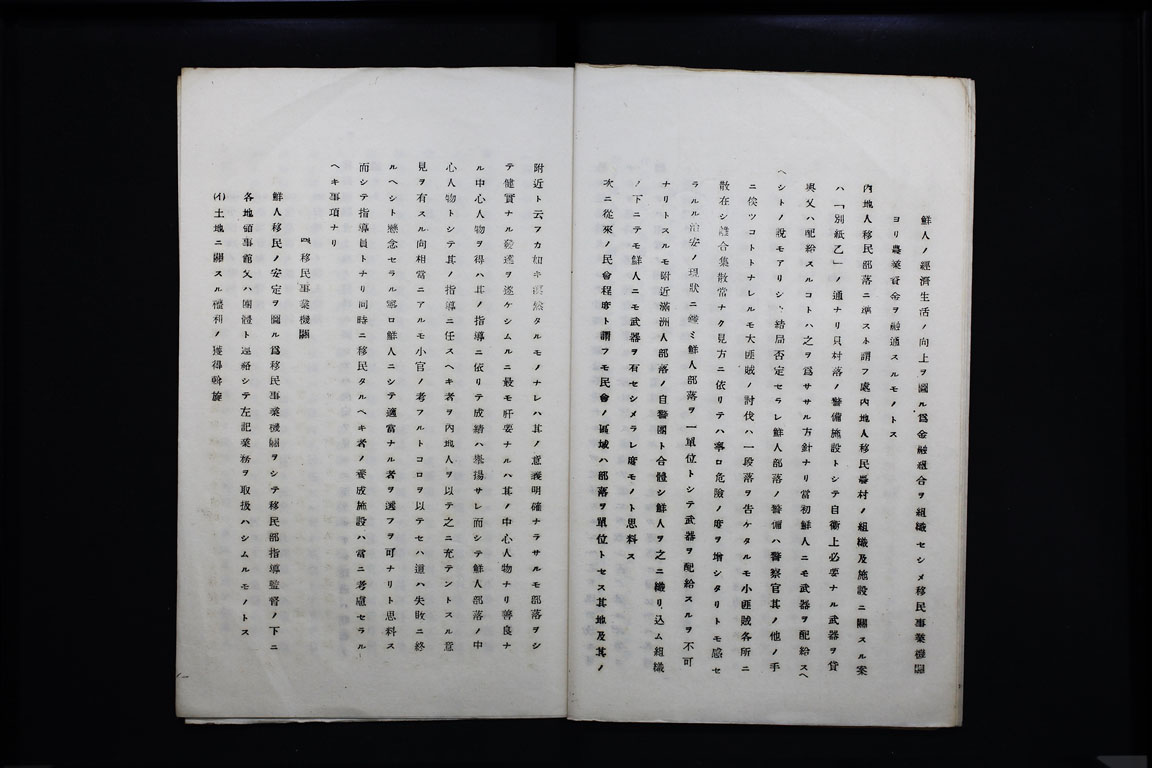 鮮人ノ經濟生活ノ向上ヲ圖ル爲金融組合ヲ組織セシメ移民事業機關
ヨリ農業資金ヲ融通スルモノトス
內地人移民部落ニ準スト謂フ處內地人移民農村ノ組織及施設ニ關スル案
ハ「別紙乙」ノ通ナリ只村落ノ警備施設トシテ自衞上必要ナル武器ヲ貸
與又ハ配給スルコトハ之ヲ爲ササル方針ナリ當初鮮人ニモ武器ヲ配給スヘ
シトノ說モアリシ、結局否定セラレ鮮人部落ノ警備ハ警察官其ノ他ノ手
ニ俟ツコトトナレルモ大匪賊ノ討伐ハ一段落ヲ吿ケタルモ小匪賊各所ニ
散在シ離合集散常ナク見方ニ依リテハ寧ロ危險ノ度ヲ增シタリトモ感セ
ラルル治安ノ現狀ニ鑑ミ鮮人部落ヲ一單位トシテ武器ヲ配給スルヲ不可
ナリトスルモ附近滿洲人部落ノ自警團ト合體シ鮮人ヲ之ニ織リ込ム組織
ノ下ニテモ鮮人ニモ武器ヲ有セシメラレ度モノト思料ス
次ニ從來ノ民會程度ト謂フモ民會ノ區域ハ部落ヲ單位トセス其地及其ノ
附近ト云フカ如キ漠然タルモノナレハ其ノ意義明確ナラサルモ部落ヲシ
テ健實ナル發達ヲ遂ケシムルニ最モ肝要ナルハ其ノ中心人物ナリ善良ナ
ル中心人物ヲ得ハ其ノ指導ニ依リテ成績ハ擧揚サレ而シテ鮮人部落ノ中
心人物トシテ其ノ指導ニ任スヘキ者ヲ內地人ヲ以テ之ニ充テントスル意
見ヲ有スル向相當ニアルモ小官ノ考フルトコロヲ以テセハ還ハ失敗ニ終
ルヘシト懸念セラル寧ロ鮮人ニシテ適當ナル者ヲ選フヲ可ナリト思料ス
而シテ指導員トナリ同時ニ移民タルヘキ者ノ養成施設ハ當ニ考慮セラル
ヘキ事項ナリ
四 移民事業機關
鮮人移民ノ安定ヲ圖ル爲移民事業機關ヲシテ移民部指導監督ノ下ニ
各地領事館又ハ團體ト連絡シテ左記業務ヲ取扱ハシムルモノトス
(イ)土地ニ關スル權利ノ獲得斡旋